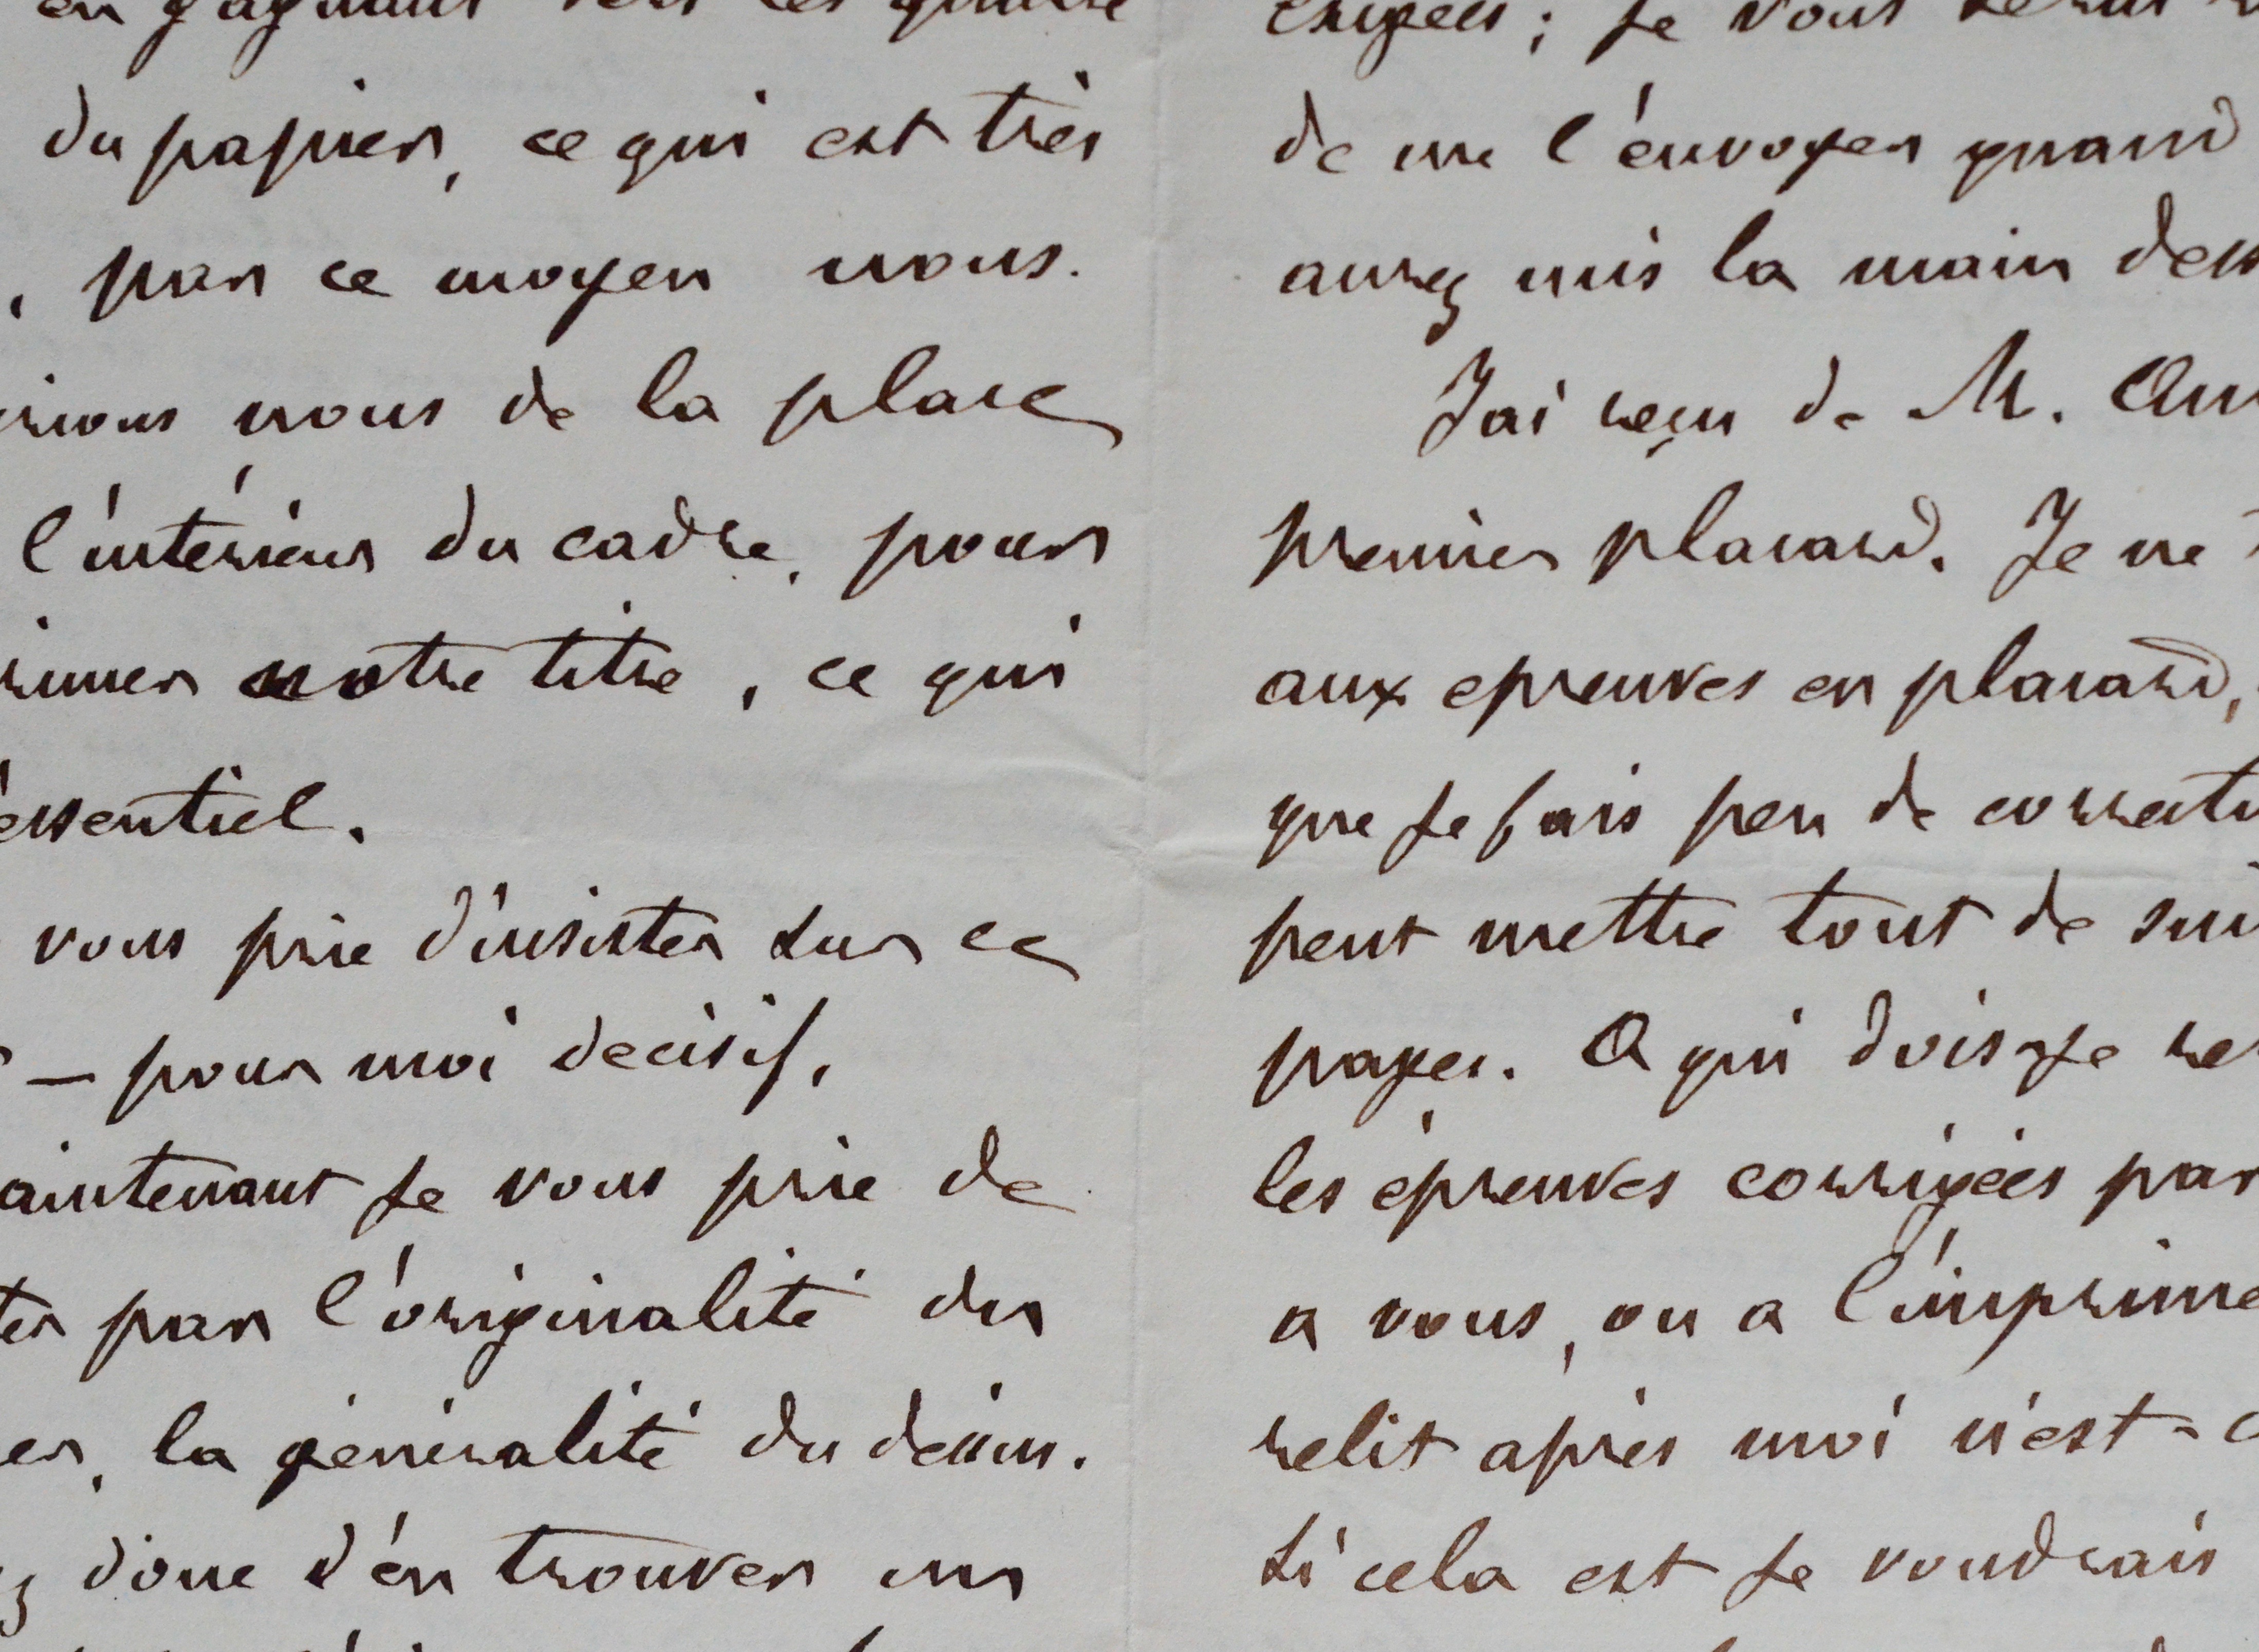 du papier, ce qui est très
, par ce moyen nous.
nous de la place
l'intérieur du cadre, pour
notre titre, ce qui
essentiel.
vous prie d'insister sur ce
— pour moi decisif,
aintenant je vous prie de
par l'originalité du
la généralité du dessin.
donc d'en trouver un
de me l'envoyer quand
aurez mis la main dess
J'ai reçu de M.
premier placard. Je ne
aux epreuves en placard,
que je fais peu de correcti
peut mettre tout de sui
pages. A qui dois je re
les épreuves corrigées par
a vous, ou a l'imprime
relit après moi n'est-c
si cela est je voudrais